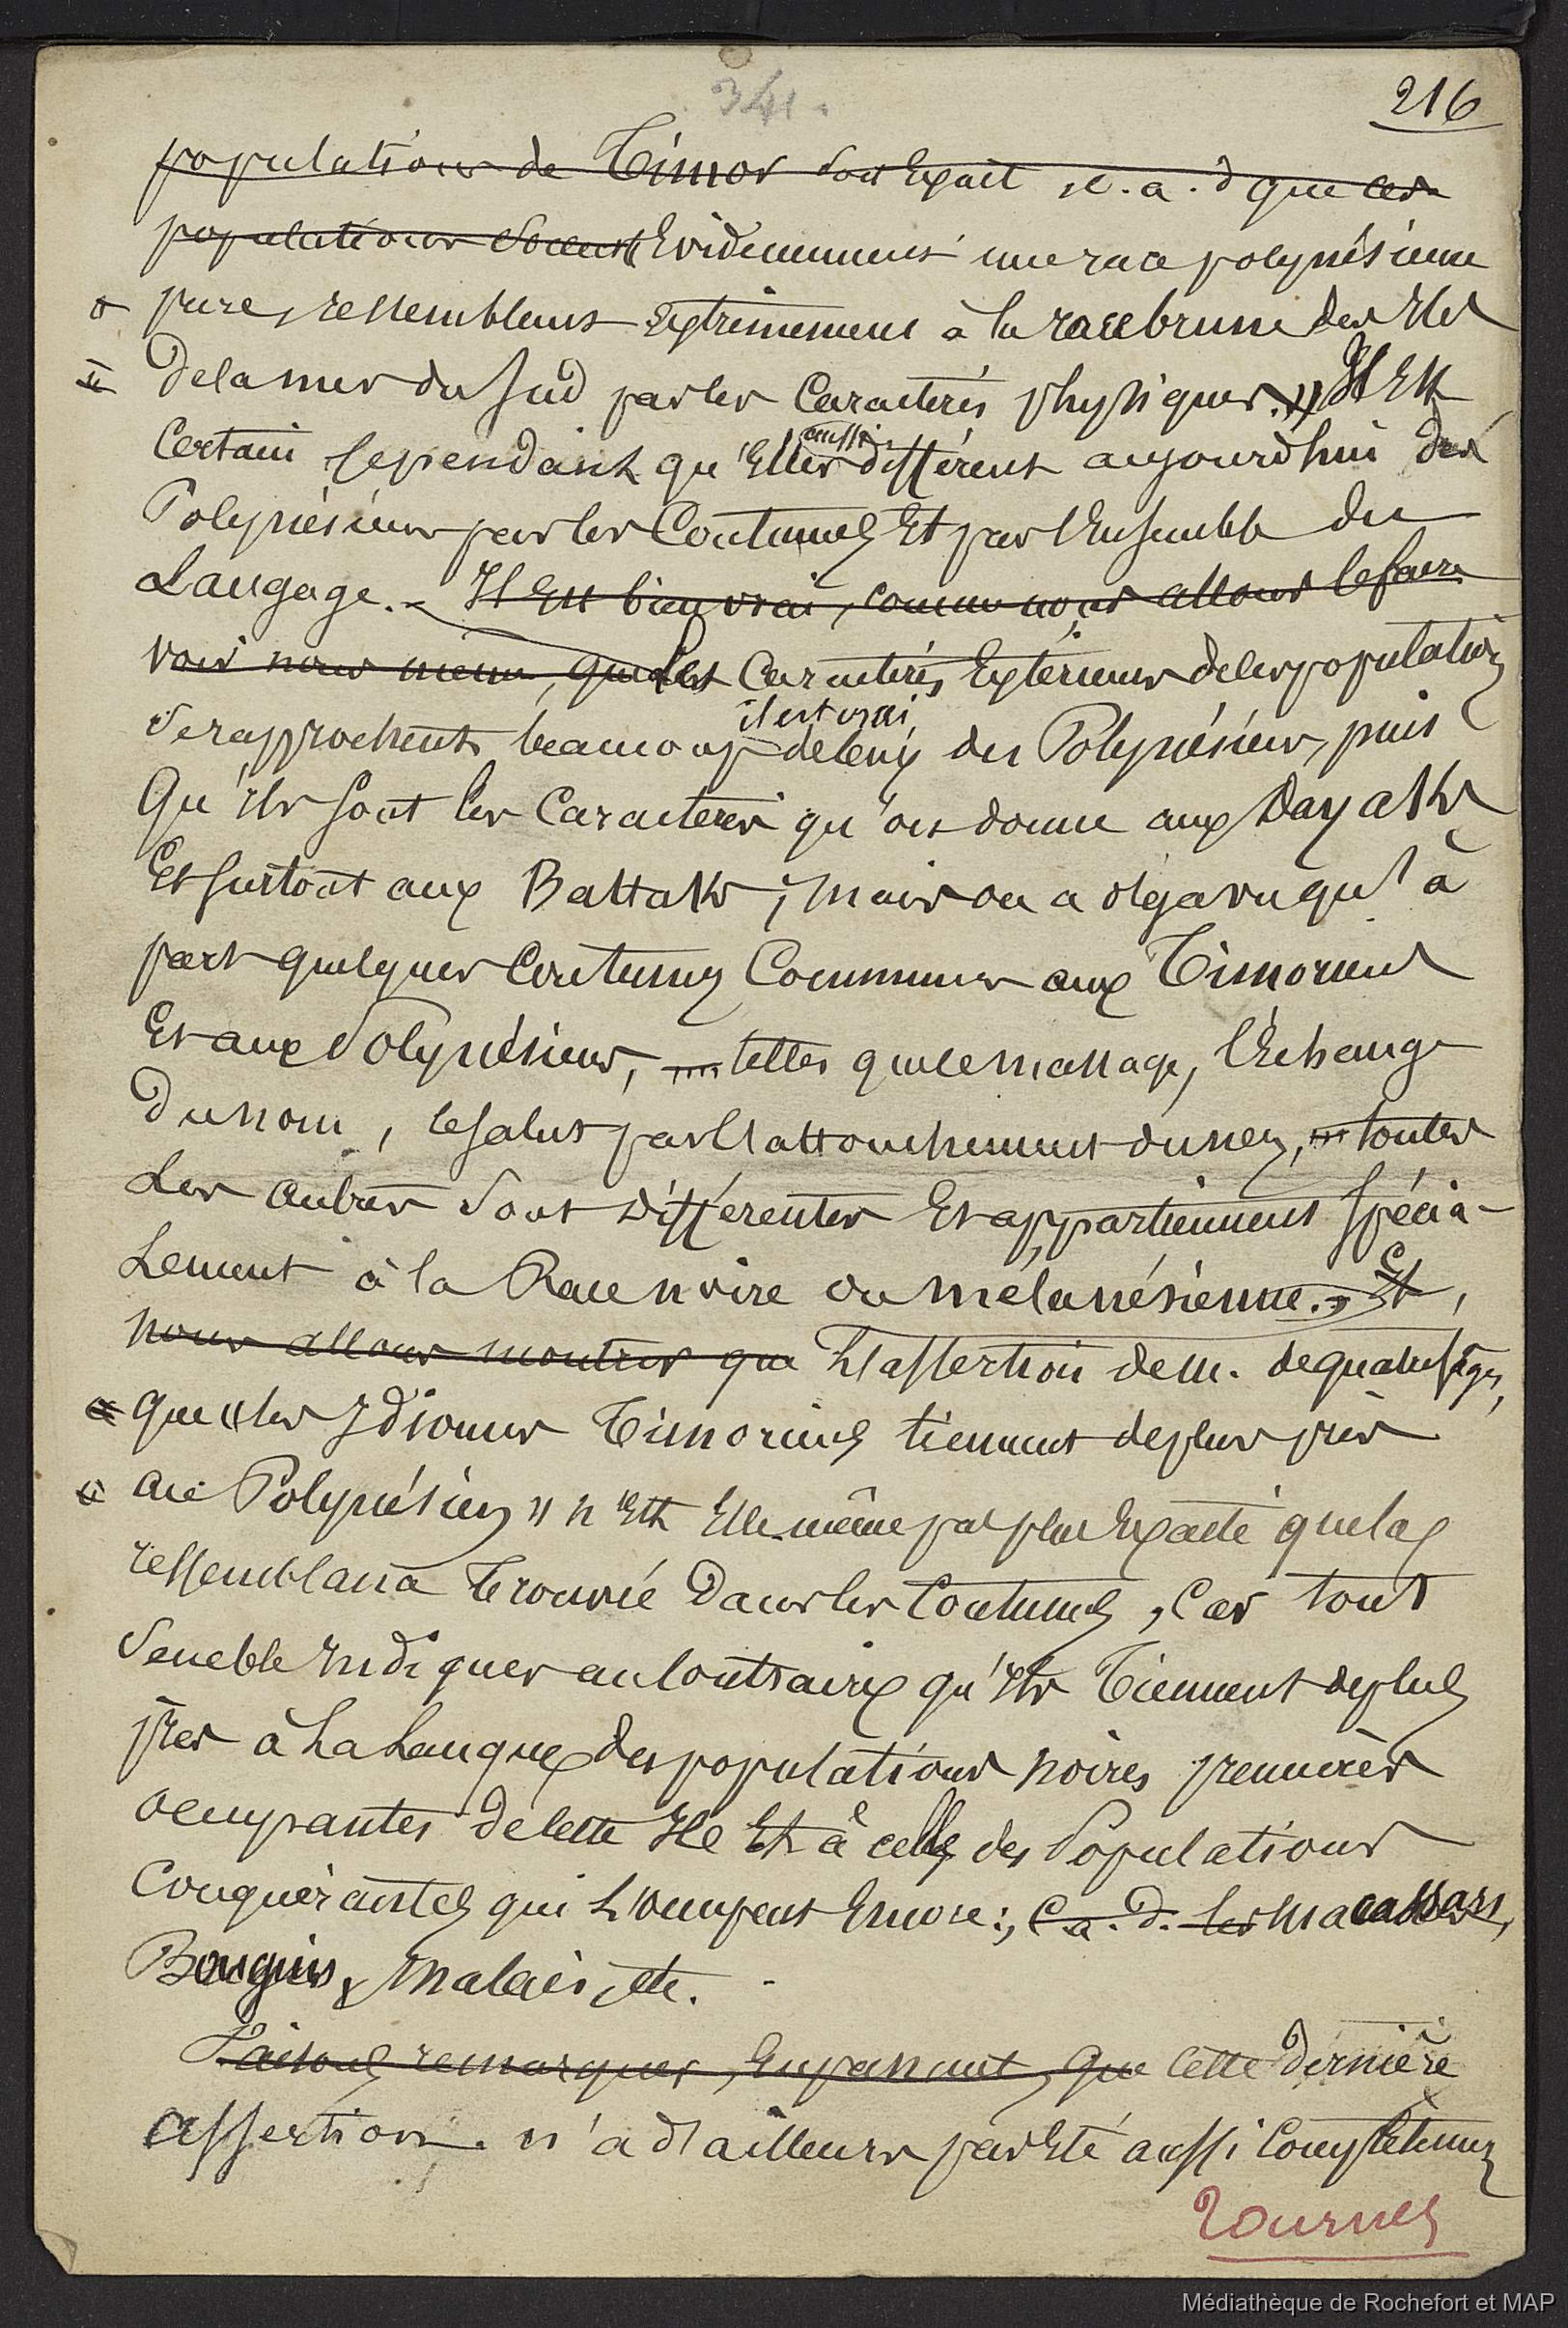 341.
216
populations de Timor soit Exait, c. a. d que ces
populations soient Evidemment une race polynésienne
pure, ressemblant Extrêmement à la race brune des Iles
De la mer du Sud par les Caractères physiques. » Il Est
Certain Cependant qu'Elles aussi diffèrent aujourd'hui des
Polynésiens par les Coutumes Et par l'Ensemble du
Langage. - Il Est bien vrai, comme nous allons le faire
voir nous même, que les Caractères Extérieurs de les population
se rapprochent beaucoup il est vrai de ceux des Polynésiens, puis
Qu'ils sont les Caractères qu'on donne aux Dayaks
Et surtout aux Battaks; mais on a déja vu qu'à
part quelques Coutumes Communes aux Timoriens
Et aux Polynésiens, telles que le massage, l'Echange
Du nom, le salut par l'attouchement du nez, toutes
Les autres sont Différentes Et appartiennent spécia-
Lement à la Race noire ou mélanésienne. Et,
nous allons montrer que L'assertion de M. de quatrefages,
que « les Idiomes Timoriens tiennent de plus près
au Polynésien » n'Est Elle même pas plus Exacte que la
ressemblance trouvée Dans les Coutumes, Car tout
Semble Indiquer au Contraire qu'Ils Tiennent de plus
près à La Langue des populations noires premières
occupantes de cette Ile Et à celle des Populations
Conquérantes qui L'occupent Encore:, C. a. d. les Macassars,
Bouguis, & Malais, etc.
Faisons remarquer, En passant, que Cette Dernière
assertion. n'a d'ailleurs pas Eté aussi Complètement
Tournez
Médiathèque de Rochefort et MAP